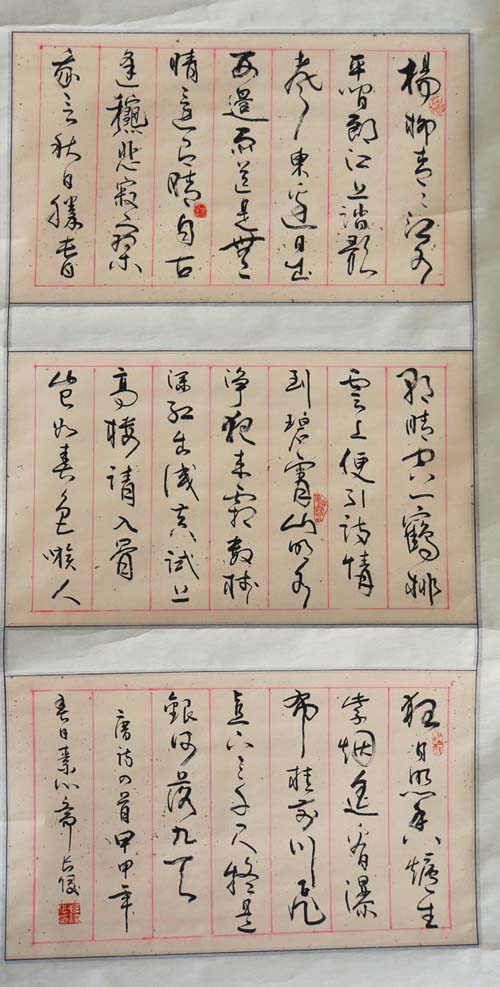 楊柳青々江水
平聞郎江上踏歌
声東邊日出
西邊雨道是無
晴還有晴自古
逢穐悲寂寥
我言秋日勝春
朝晴空一鶴排
雲上便引詩情
到碧霄山明水
净夜来霜數樹
深紅出淺黄試上
高樓清入骨
豈如春色嗾人
狂日照香爐生
紫烟遥看瀑
布挂前川飛
流直下三千尺疑是
銀河落九天
唐詩四首甲申年
春日素心斋